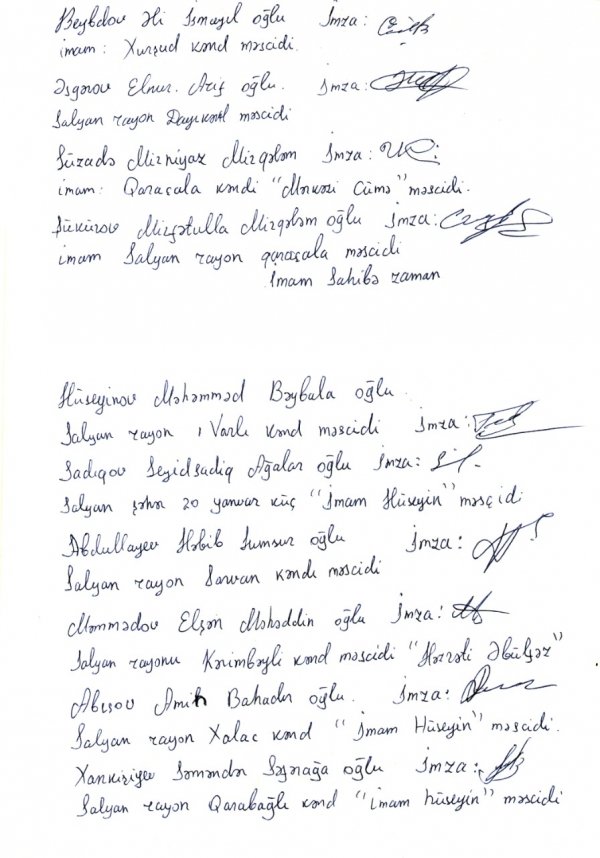 Beybdov Əli İsmayıl oğlu İmza:
imam: Xurşud kənd məscidi.
Əsgərov Elnur. Arif oğlu. İmza:
Salyan rayon Dayıkənd məscidi
Şüzadə Mirniyaz Mirqələm İmza:
imam: Qaraçala kəndi "Mərkəzi Cümə" məscidi.
Şükürov Mirfətulla Mirqələm oğlu İmza:
imam Salyan rayon qaraçala məscidi
İmam Sahibə zaman
Hüseyinov Məhəmməd Bəybala oğlu
Salyan rayon, Varlı kənd məscidi İmza:
Sadıqov Seyidsadiq Ağalar oğlu İmza:
Salyan şəhər 20 yanvar küç "İmam Hüseyin" məsçidi
Abdullayev Həbib Sumsur oğlu İmza:
Salyan rayon Sarvan kəndi məscidi
Məmmədov Elşən Məhəddin oğlu İmza:
Salyan rayonu Kərimbəyli kənd məscidi "Həzrəti Əbülfəz"
Abışov Amin Bahadır oğlu. İmza:
Salyan rayon Xalac kənd "İmam Hüseyin" məscidi.
Xankişiyev Səməndər Səfərağa oğlu İmza:
Salyan rayon Qarabağlı kənd "imam hüseyin" məscidi